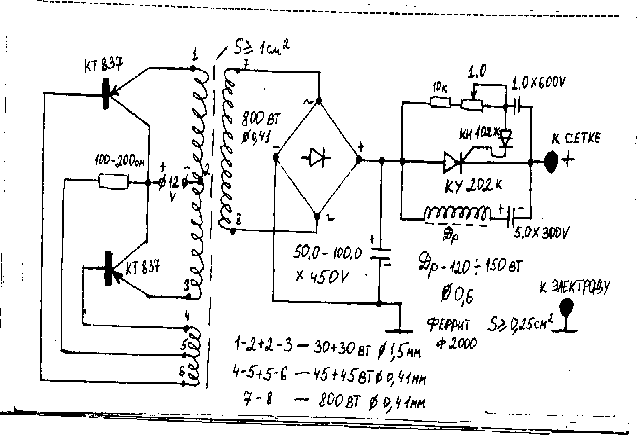 S ≥ 1 см²
КТ 837
1
7
800 ВТ
Ø 0,41
10к
1.0
1.0 х 600V
КН 102Ж
К СЕТКЕ
+
100-200 ом
+
12
V
-
2
-
+
~
~
КУ 202к
+ -
5,0 х 300V
Др
8
КТ 837
3
50,0 - 100,0
х 450V
+
-
Др - 120 ÷ 150 ВТ
Ø 0,6
ФЕРРИТ S ≥ 0,25 см²
Ф 2000
К ЭЛЕКТРОДУ
4
5
6
1-2+2-3 — 30+30 ВТ Ø 1,5 мм
4-5+5-6 — 45+45 ВТ Ø 0,41 мм
7 - 8 — 800 ВТ Ø 0,41 мм